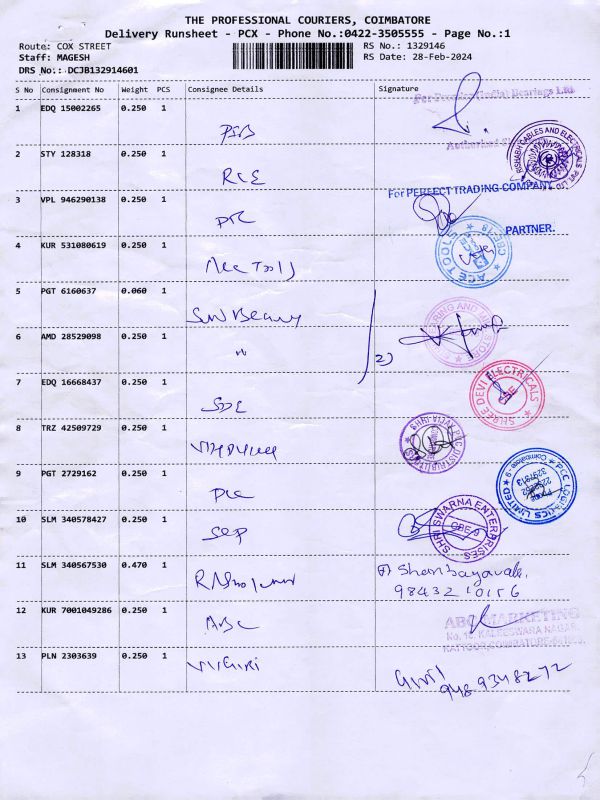 THE PROFESSIONAL COURIERS, COIMBATORE
Delivery Runsheet - PCX - Phone No.:0422-3505555 - Page No.:1
Route: COX STREET RS No.: 1329146
Staff: MAGESH RS Date: 28-Feb-2024
DRS No.: DCJB132914601
S No Consignment No Weight PCS Consignee Details Signature
1 EDQ 15002265 0.250 1
2 STY 128318 0.250 1
RISHABH CABLES AND ELECTRICALS PVT LTD
RCE
3 VPL 946290138 0.250 1
For PERFECT TRADING COMPANY
PTC
PARTNER.
4 KUR 531080619 0.250 1
ACE TOOLS
CBE-18
Ace Tools
5 PGT 6160637 0.060 1
6 AMD 28529098 0.250 1
"
2)
7 EDQ 16668437 0.250 1
SHREE DEVI ELECTRICALS
CBE
SDE
8 TRZ 42509729 0.250 1
9 PGT 2729162 0.250 1
PCC LOGISTICS LIMITED
Coimbatore - 9
PCC
10 SLM 340578427 0.250 1
SHRI SWARNA ENTERPRISES
CBE-9
SEP
11 SLM 340567530 0.470 1
98432 10156
12 KUR 7001049286 0.250 1
ABC MARKETING
No. 10, KALEESWARA NAGAR,
KATTOOR, COIMBATORE
ABC
13 PLN 2303639 0.250 1
VVGIRI
Giri
948 9348272